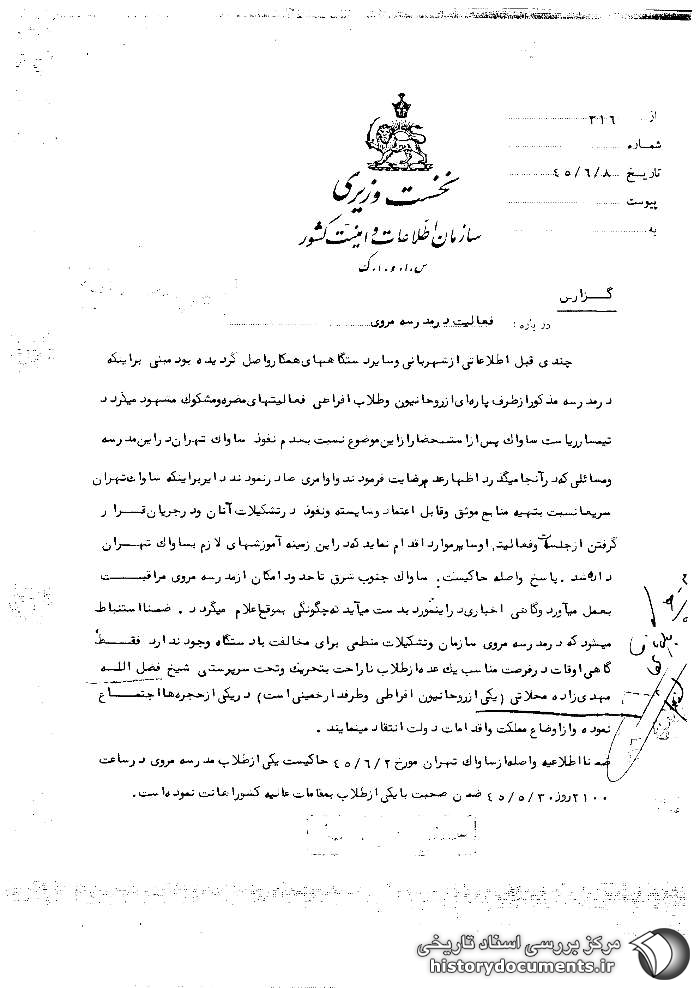 از ۳۱۶
شماره
تاریخ ۴۵/۶/۸
پیوست
به
نخست وزیری
سازمان اطلاعات و امنیت کشور
س.ا.و.ا.ک
گزارش
درباره : فعالیت در مدرسه مروی
چندی قبل اطلاعاتی از شهربانی و سایر دستگاههای همکار واصل گردیده بود مبنی بر اینکه
در مدرسه مذکور از طرف پاره‌ای از روحانیون و طلاب افراطی فعالیتهای مضره و مشکوک مشهود میگردد
تیمسار ریاست ساواک پس از استحضار از این موضوع نسبت بعدم نفوذ ساواک تهران در این مدرسه
و مسائلی که در آنجا میگذرد اظهار عدم رضایت فرمودند و اوامری صادر نمودند دایر بر اینکه ساواک تهران
سریعا نسبت بتهیه منابع موثق و قابل اعتماد و سایسته و نفوذ در تشکیلات آنان و در جریان قرار
گرفتن از جلسات و فعالیت و سایر موارد اقدام نماید که در این زمینه آموزشهای لازم بساواک تهران
داده شد . پاسخ واصله حاکیست . ساواک جنوب شرق تا حدود امکان از مدرسه مروی مراقبت
بعمل میآورد و گاهی اخباری در اینمورد بدست میآید که چگونگی بموقع اعلام میگردد . ضمنا استنباط
میشود که در مدرسه مروی سازمان و تشکیلات منظمی برای مخالفت با دستگاه وجود ندارد فقط
گاهی اوقات در فرصت مناسب یک عده از طلاب ناراحت بتحریک و تحت سرپرستی شیخ فضل الله
مهدی زاده محلاتی (یکی از روحانیون افراطی و طرفدار خمینی است) در یکی از حجره‌ها اجتماع
نموده و از اوضاع مملکت و اقدامات دولت انتقاد مینمایند .
ضمنا اطلاعیه واصله از ساواک تهران مورخ ۴۵/۶/۲ حاکیست یکی از طلاب مدرسه مروی در ساعت
۲۱۰۰ روز ۴۵/۵/۳۰ ضمن صحبت با یکی از طلاب بمقامات عالیه کشور اهانت نموده است .
مرکز بررسی اسناد تاریخی
historydocuments.ir